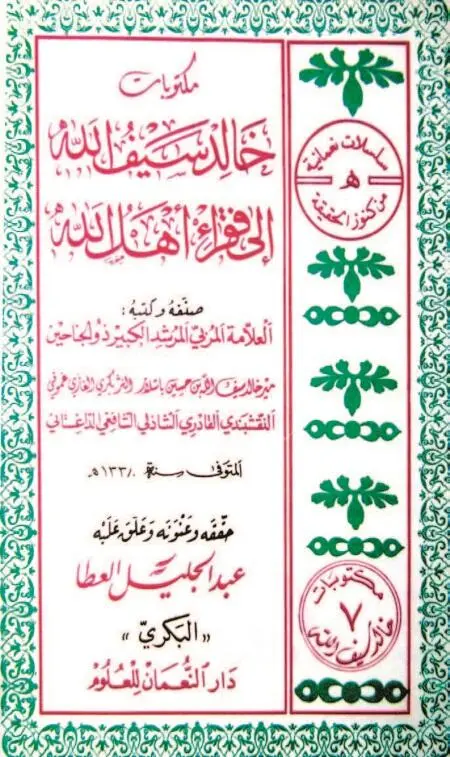 مكتوبات
خالد سيف الله
إلى فقراء أهل الله
صنفه وكتبه:
العلامة المربي المرشد الكبير ذو الجناحين
مير خالد سيف الله بن حسين باشلار النزكري الغازي غموقي
النقشبندي القادري الشاذلي الشافعي الداغستاني
المتوفى سنة
حققه وعنونه وعلق عليه
عبد الجليل العطا
«البكري»
دار النعمان للعلوم
سلسلات نعمانية
ه
من كنوز الحقيقة
مكتوبات
٧
خالد سيف الله